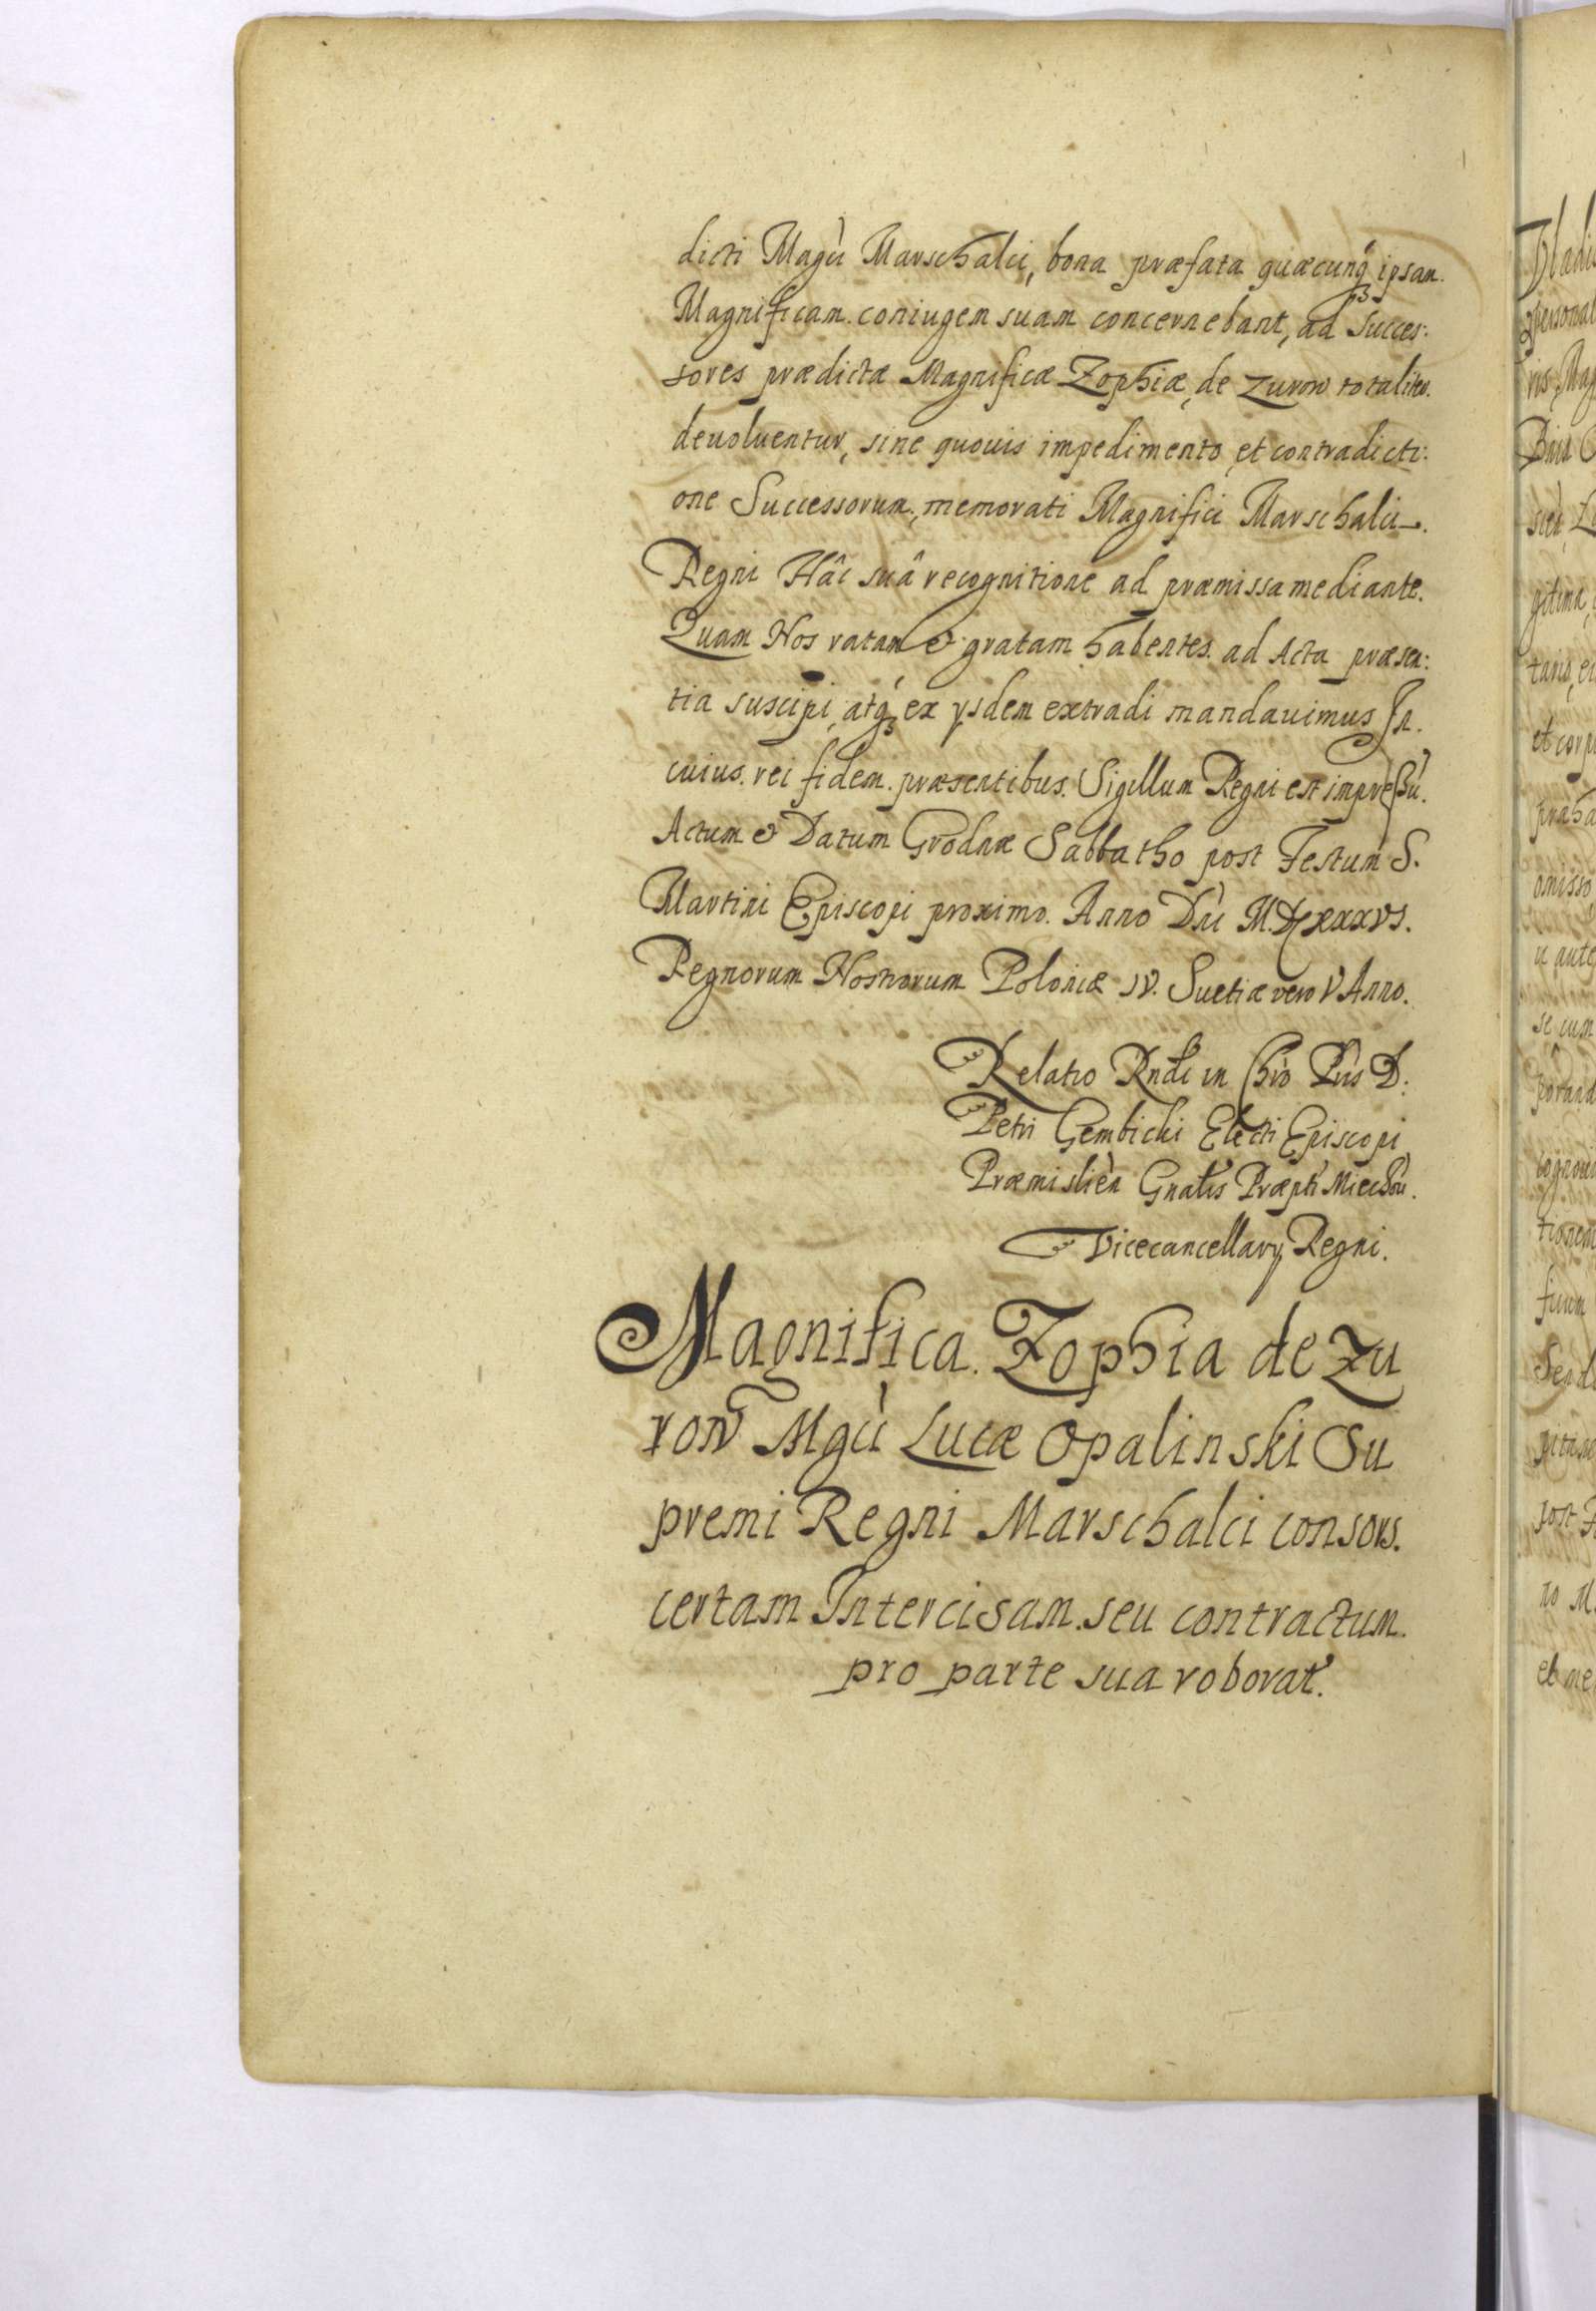 dicti Magci Marschalci, bona præfata quæcunq₃ ipsam.
Magnificam. coniugem suam concernebant, ad Succes:
sores prædictæ Magnificæ Zophiæ, de Zurow totaliter.
deuoluentur, sine quouis impedimento, et contradicti:
one Successorum, memorati Magnifici Marschalci.
Regni Hâc suâ recognitione ad præmissa mediante.
Quam Nos ratam & gratam habentes. ad Acta præsen:
tia suscipi, atq₃ ex ysdem extradi mandauimus In.
cuius. rei fidem. præsentibus. Sigillum Regni est impreßu.
Actum & Datum Grodnæ Sabbatho post Festum S.
Martini Episcopi proximo. Anno Dni M.DCXXXVI.
Regnorum Nostrorum Poloniæ IV. Suetiæ vero V Anno.
Relatio Rndi in Chro Pris D.
Petri Gembicki Electi Episcopi
Præmislien Gnalis Præpti Miechou.
Vicecancellary Regni.
Magnifica. Zophia de Zu
row Mgci Lucæ Opalinski Su
premi Regni Marschalci consors.
certam Intercisam. seu contractum.
pro parte sua roborat.